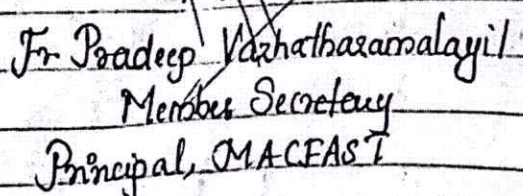 Fr Pradeep Vazhatharamalayil
Member Secretary
Principal, MACFAST